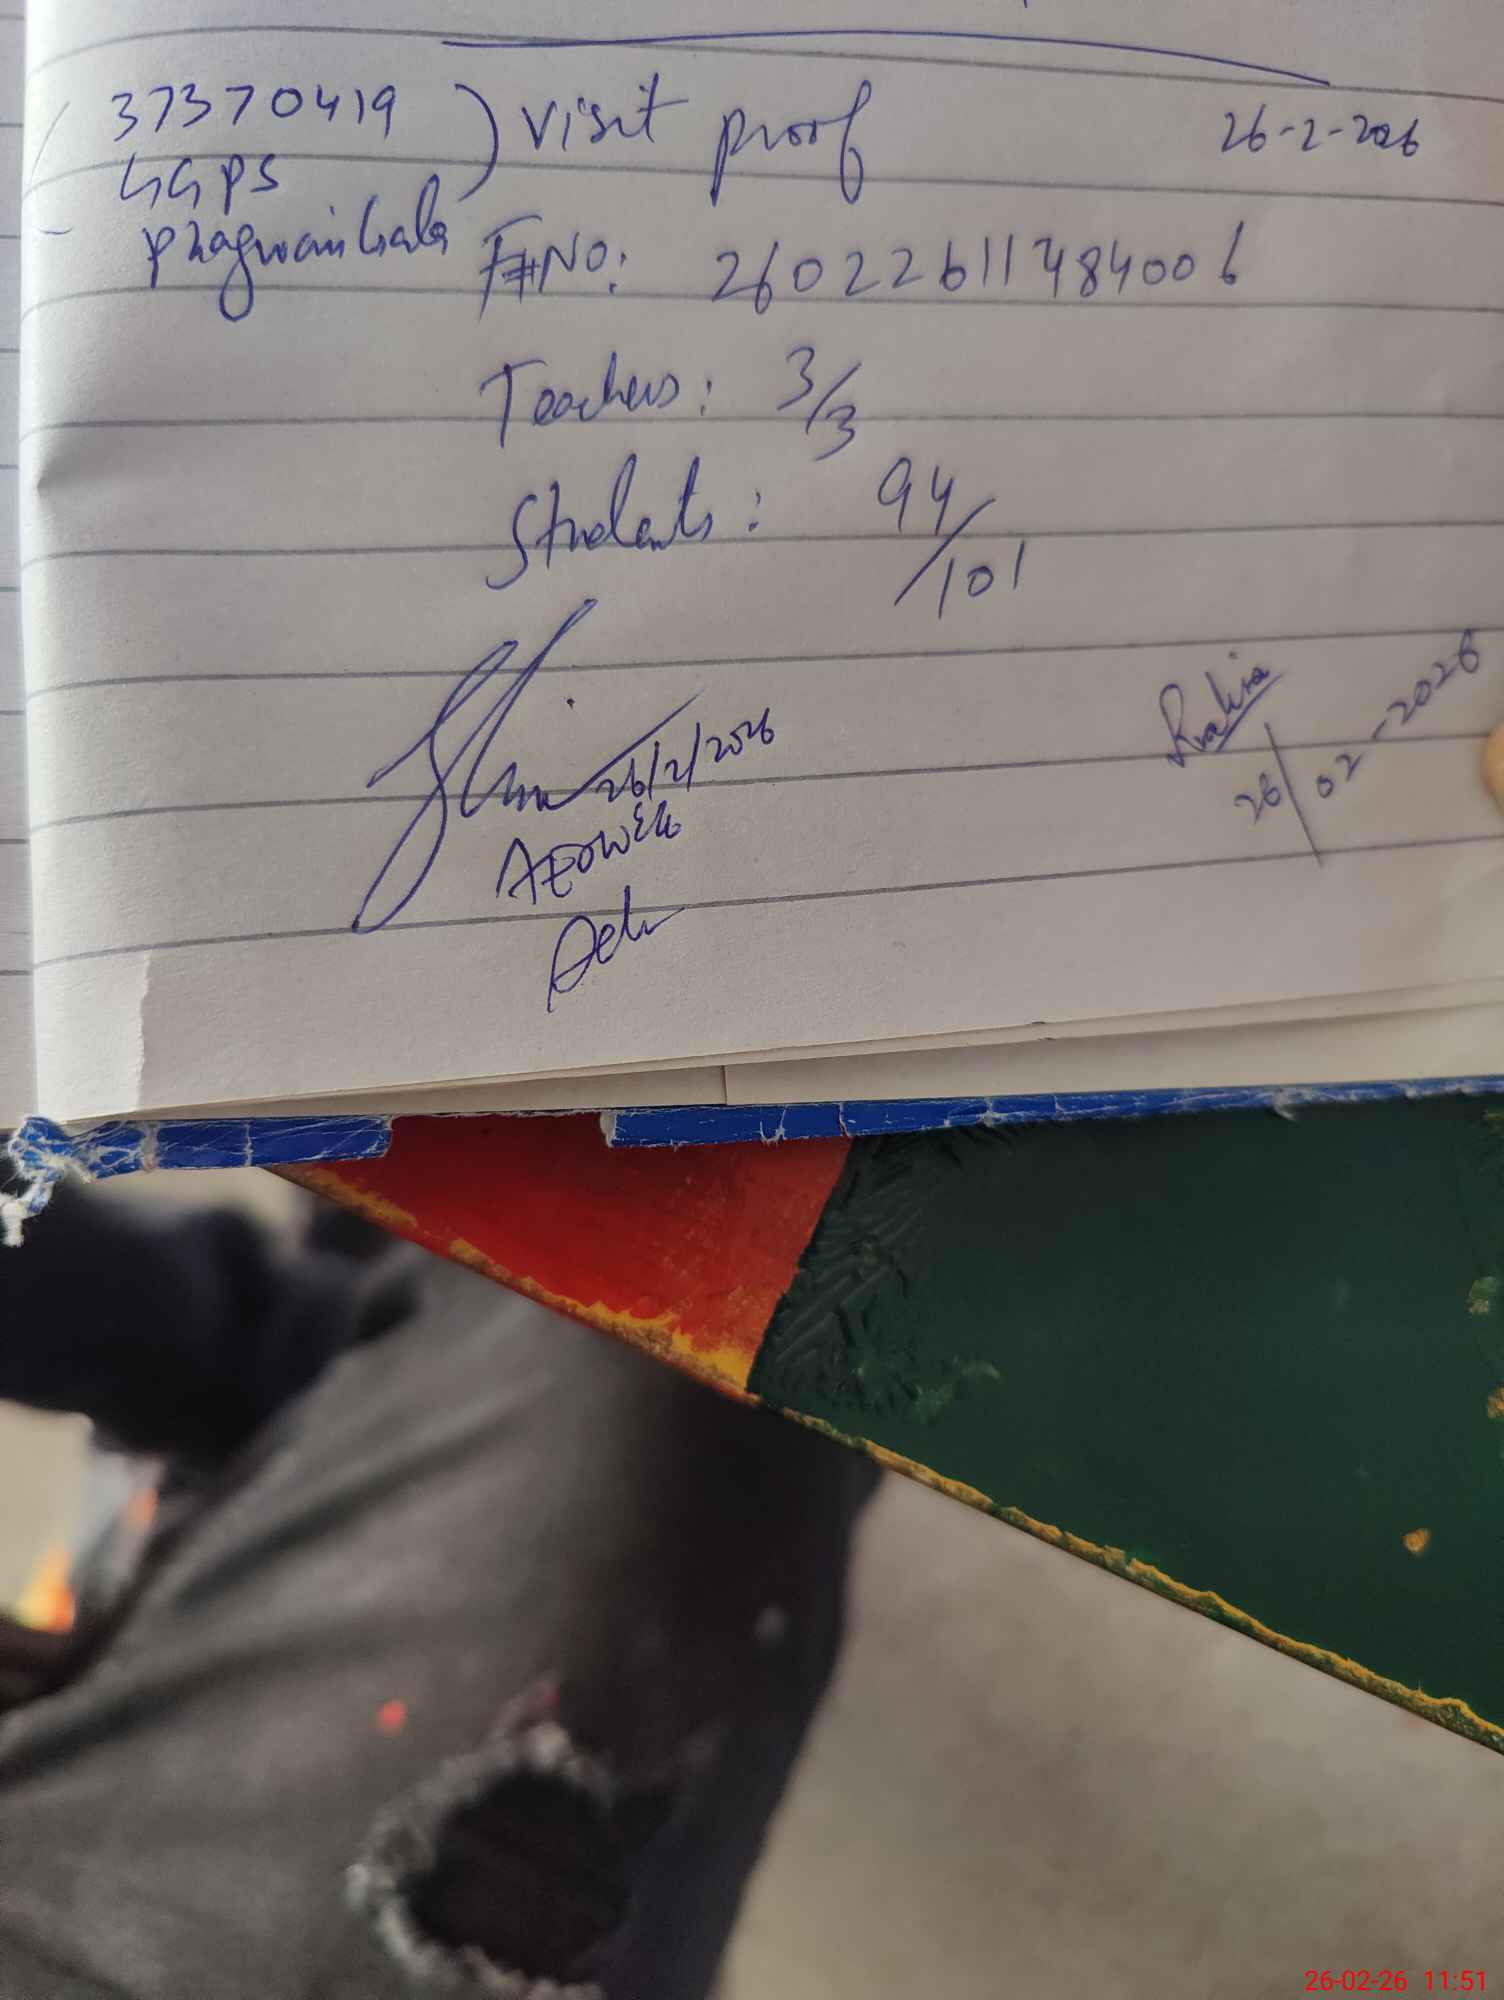 37370419
GGPS
) visit proof
26-2-2026
F#NO: 26022611484006
Teachers: 3/3
Students: 94/101
26/2/2026
AEOWEE
Rakia
26/02-2026
26-02-26 11:51